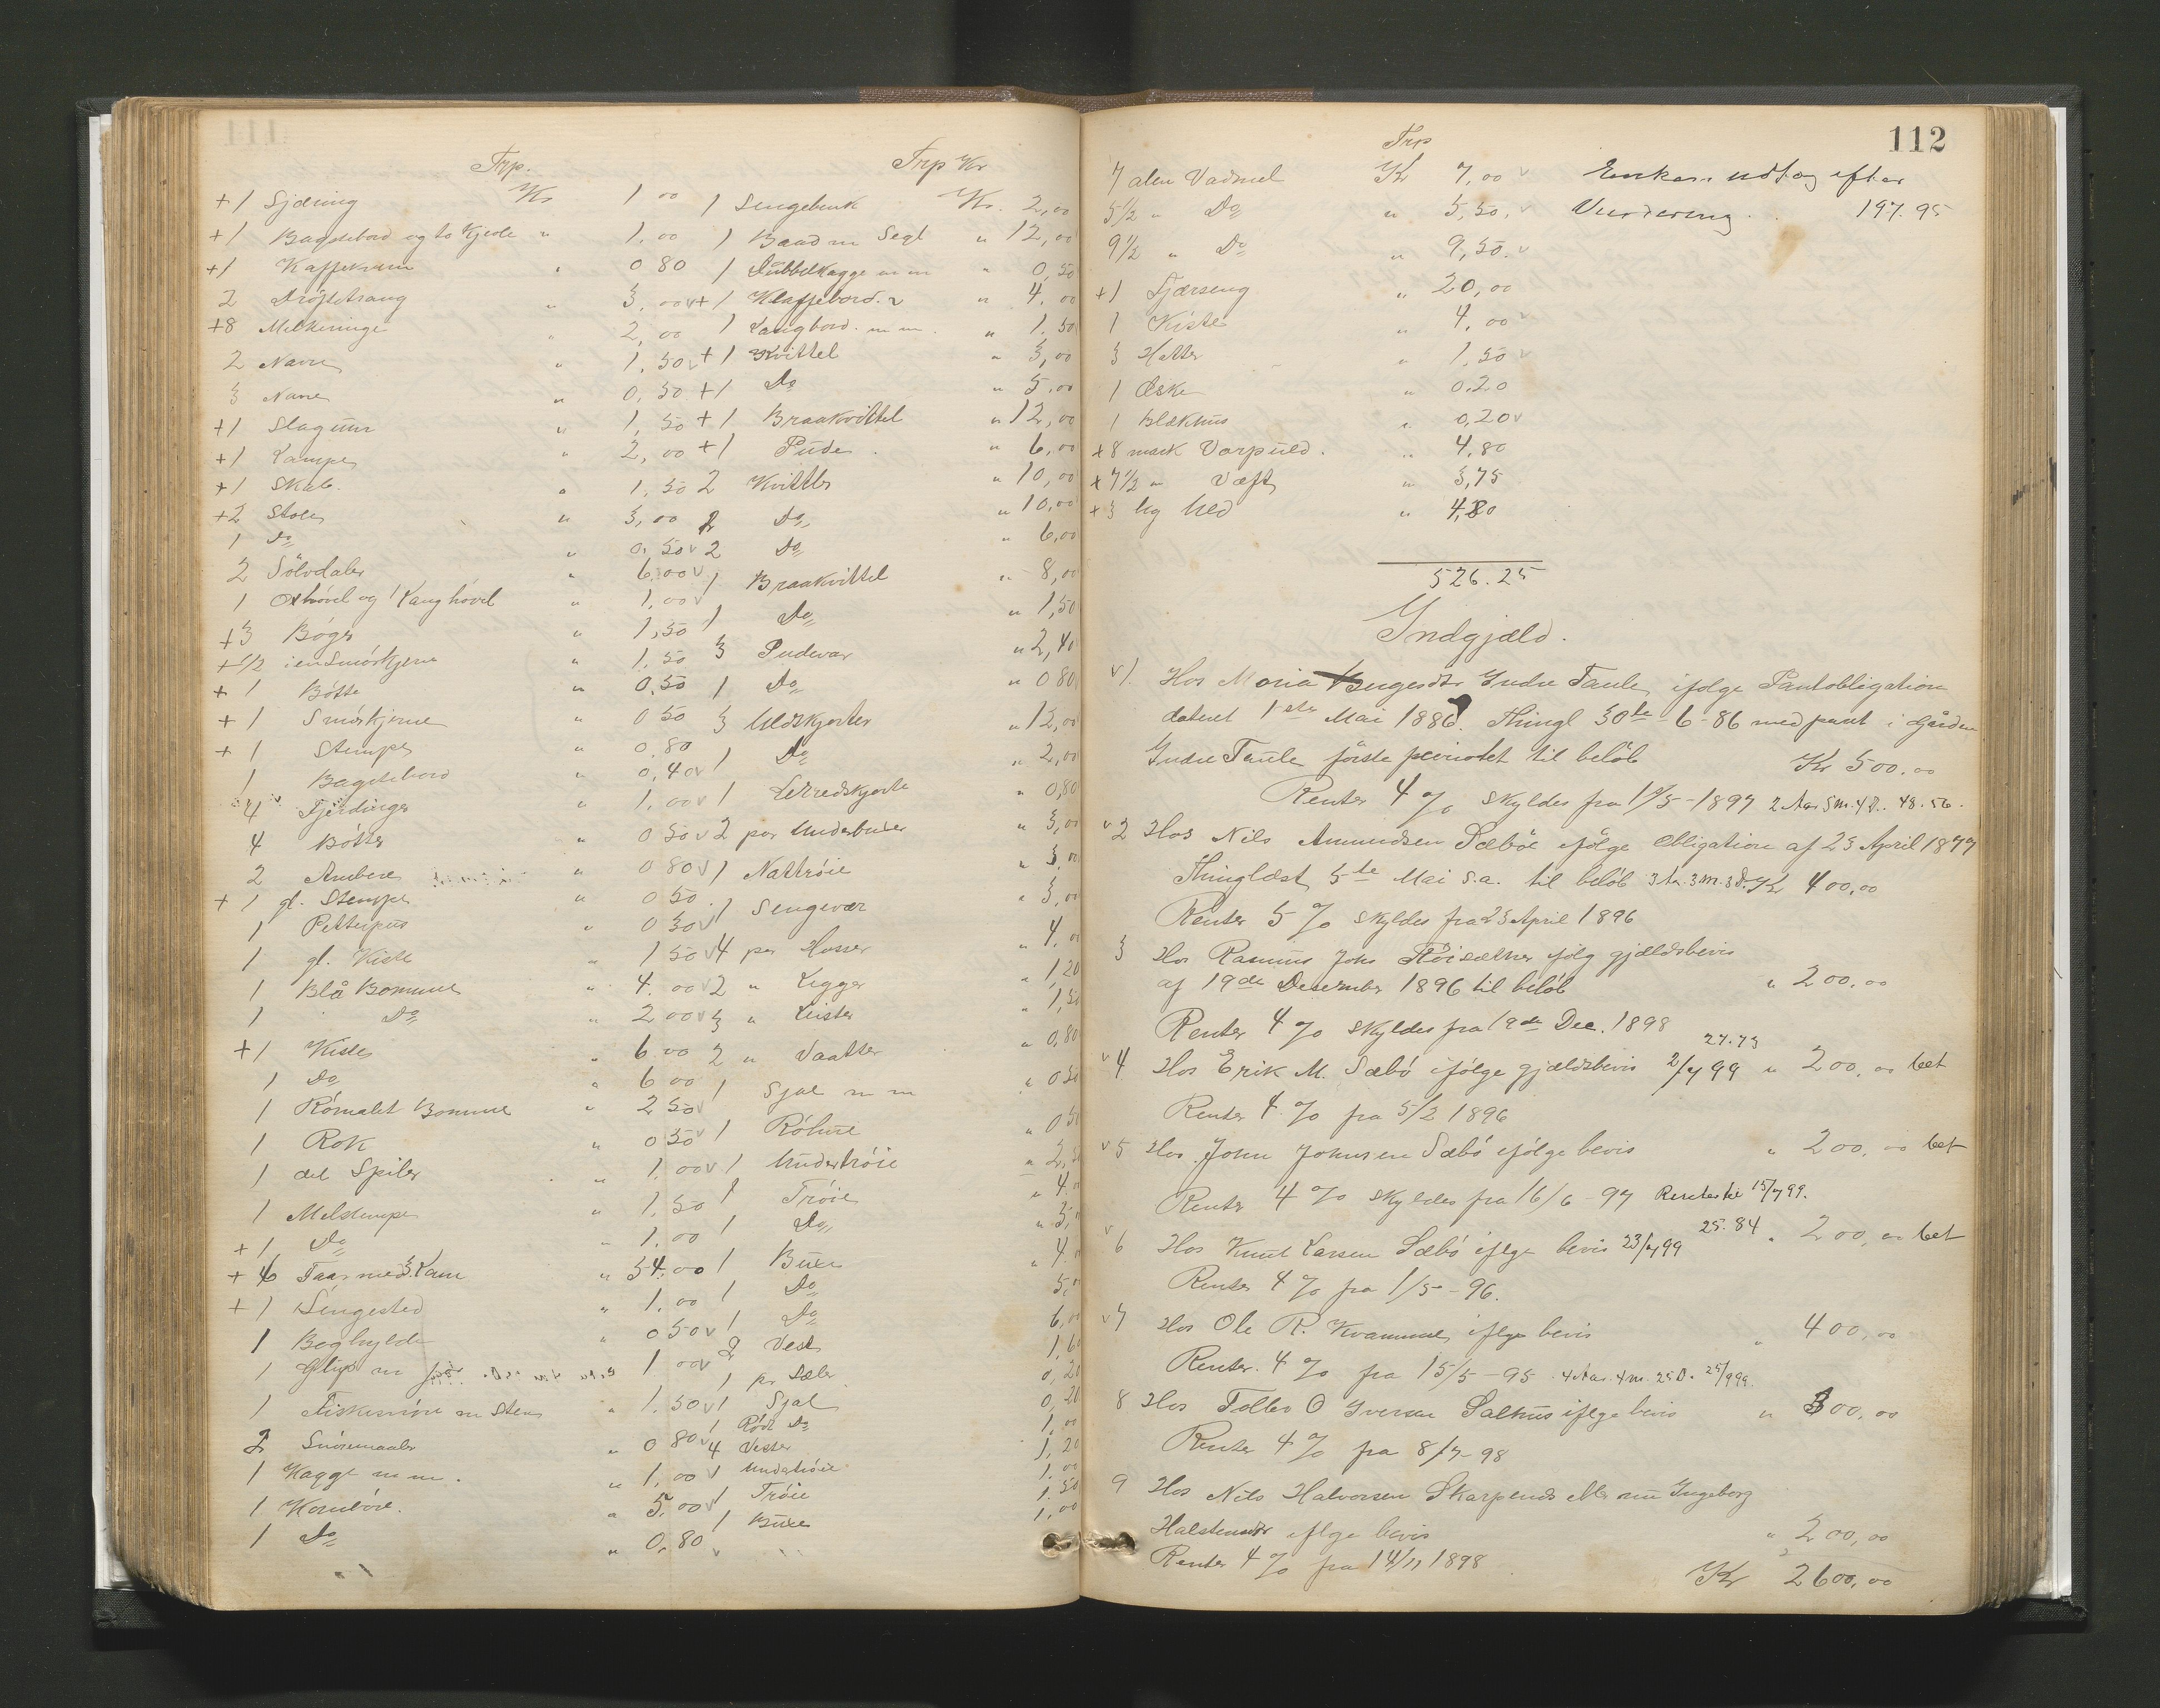 Trp.
+1 Sjæring Kr 1 00
+1 Bagstebord og to Kjede " 1.00
+1 Kaffekram " 0 80
2 " 3.00 v
+8 Melkeringe " 2,00
2 Navre " 1.50 v
3 Navre " 0,50
+1 Slaguur " 1,50
+1 Lampe " 2,00
+1 Skab. " 1,50
+2 Stole " 3,00
1 Do " 0.50 v
2 Sölvdaler " 6.00 v
1 Oxhövel og 1 Langhövel " 1,00 v
+3 Bøger " 1,50
+1/2 i en Smörkjerne " 1.50
+1 Bötte " 0,50
+1 Smörkjerne " 0 50
+1 Stempe " 0.80
1 Bagstebord " 0,40 v
4 Fjerdinger " 1.00 v
4 Bötter " 0 50 v
2 Ambere " 0 80 v
+1 gl. Stempe " 0 50
1 " 0 30 v
1 gl. Kiste " 1 50 v
1 Blå Bomme " 4.00 v
1 Do " 2 00 v
+1 Kiste " 6.00
1 Do " 6 00
1 Römalet Bomme " 2 50 v
1 Rok " 0 50 v
1 del Spiler " 1.00 v
1 Melstempe " 1,50
+1 Do " 1.00
+6 Faar med 3 Lam " 54.00
+1 Sengested " 1.00
1 Boghylde " 0 50 v
1 Glip m 1 00 v
1 Fiskesnöre m Sten " 1.50 v
2 Snöremaaler " 0 80 v
1 Kagge m m. " 1.00 v
1 Korntöre. " 5.00 v
1 Do " 0.80 v
Trp Kr
1 Sengebenk Kr. 2,00
1 Baad m Segl " 12,00
1 Dubbelkagge m m " 0,50
+1 Klaffebord. " 4.00
1 Langbord. m m. " 1.50
+1 Kvittel " 3,00
+1 Do " 5.00
+1 Braakvittel " 12,00
+1 Pude. " 6,00
2 Kvittler " 10,00
2 Do " 10,00
2 Do " 6,00
1 Braakvittel " 8,00
1 Do " 1,50
3 Pudevar " 2,40
1 Do " 0 80
3 Uldskjorter " 12,00
1 Do " 2,00
1 Lerredskjorte " 0,80
2 par Underbuxer " 3,00
1 Nattröie " 3.00
1 Sengevær " 3,00
4 par Hoser " 4.
2 " Legger " 1,20
3 " Leister " 1,50
2 " Vaatter " 0,80
1 Sjal m m " 0 50
1 " 0 50
1 Undertröie " 2,50
1 Tröie " 4
1 Do " 3,
1 Buxe " 4
1 Do 5,
1 Do 6,00
2 Vest 1,60
1 pr Sæler 0,20
1 Sjal 0,20
1 Rödt Do 1,00
4 Vester 1,20
1 Undertröie 1.00
1 Tröie 1.50
1 Buxe 1,00
112
Trp
7 alen Vadmel Kr 7,00 v Enken udtog efter
5½ " Do " 5,50. v Vurdering. 197.95
9½ " Do " 9,50. v
+1 Fjærseng " 20,00
1 Kiste " 4,00 v
3 Hatter " 1,50 v
1 Øske " 0.20
1 Blækhus " 0,20 v
+8 mark Varpuld. " 4,80
+7½ " Væft " 3,75
+3 kg Uld " 4,80
526.25
Indgjæld.
v 1. Hos Maria Indre Taule, ifölge Pantobligation
dateret 1ste Mai 1886. Thingl 30te-6-86 med pant i Gården
Indre Taule förste prioritet til belöb Kr 500.00
Renter 4 % skyldes fra 1/5-1897 2 Aar 5 m. 4 D. 48.56.
v 2 Hos Nils Amundsen Sæböe ifölge obligation af 23 April 1877
Thinglæst 5te Mai s.a. til belöb 3 Ar. 3 m. 3 D. 400,00
Renter 5 % skyldes fra 23 April 1896
3 Hos Rasmus Johs Höisæther ifölg gjældsbevis
af 19de Desember 1896 til belöb " 200,00
Renter 4 % skyldes fra 19de Dec. 1898
27.73
v 4 Hos Erik M. Sæbö ifölge gjældsbevis 2/7 99 " 200,00 bet
Renter 4 % fra 5/2 1896
v 5 Hos John Johnsen Sæbö ifölge bevis " 200,00 bet
Renter 4 % skyldes fra 16/6-97 Renter til 15/7 99.
v 6 Hos Knut Larsen Sæbö ifölge bevis 23/7 99 25.84 " 200,00 bet
Renter 4 % fra 1/5-96.
v 7 Hos Ole R. Kvamme ifölge bevis " 400,00
Renter 4 % fra 15/5-95 4 Aar. 4 m. 25 D.
8 Hos Tollev O Iversen Salhus ifölge bevis " 300,00
Renter 4 % fra 8/7-98
9 Hos Nils Halvorsen Skarpenes eller nu Ingeborg
Halstensdtr ifölge bevis " 200,00
Renter 4 % fra 14/11 1898
Kr 2600,00